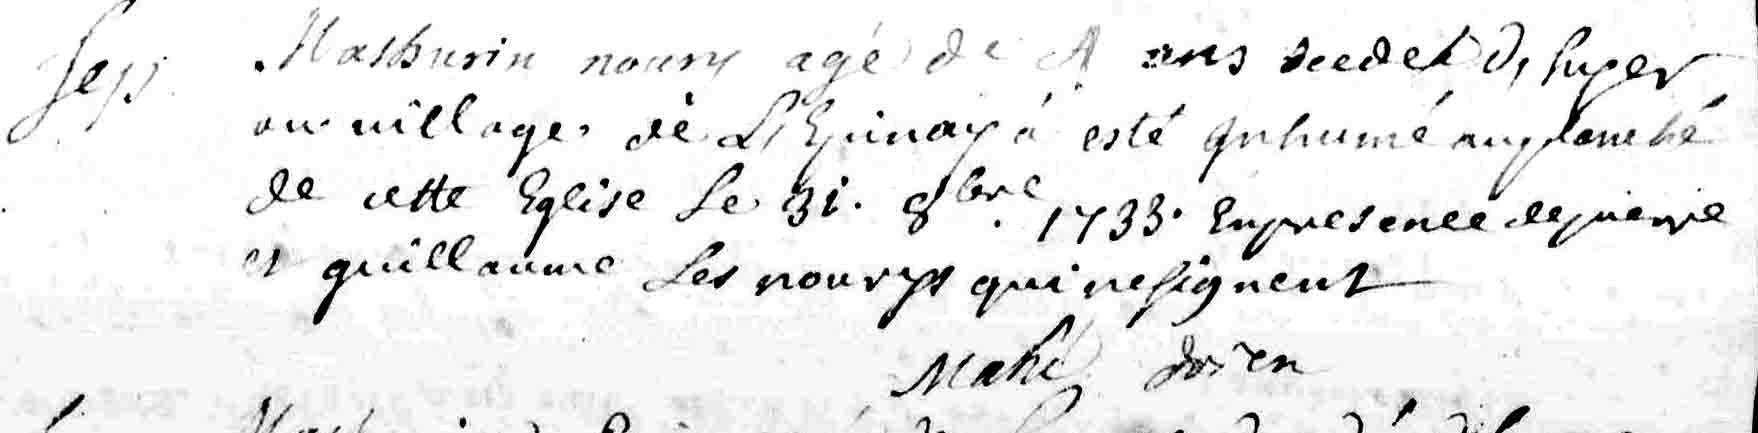 Sep.
Mathurin noury agé de ans decedé d'hyer
au village de L'Epinay a esté Inhumé au planché
de cette Eglise Le 31. 8bre. 1733. En presence de pierre
et guillaume Les nourys qui ne signent
Mahé